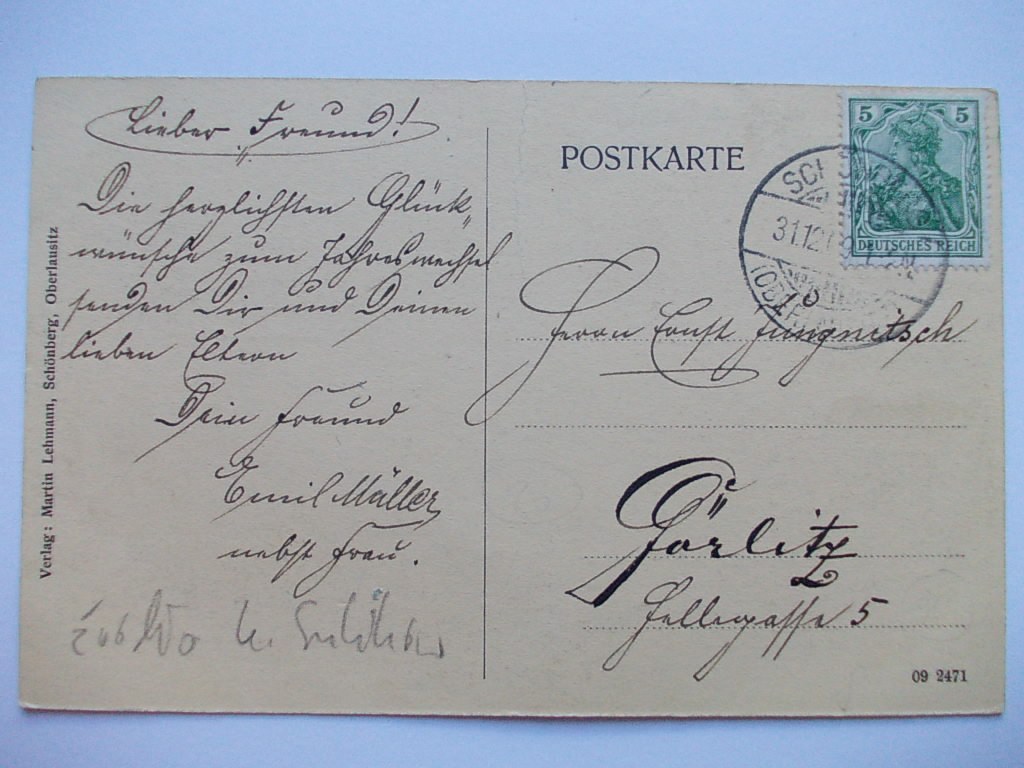 Lieber Freund!
Die herzlichsten Glück-
wünsche zum Jahreswechsel
senden Dir und Deinen
lieben Eltern
Dein Freund
Emil Müller
nebst Frau.
Verlag: Martin Lehmann, Schönberg, Oberlausitz
POSTKARTE
5 5
DEUTSCHES REICH
31.12
Herrn Ernst Jungnitsch
Görlitz
5
09 2471